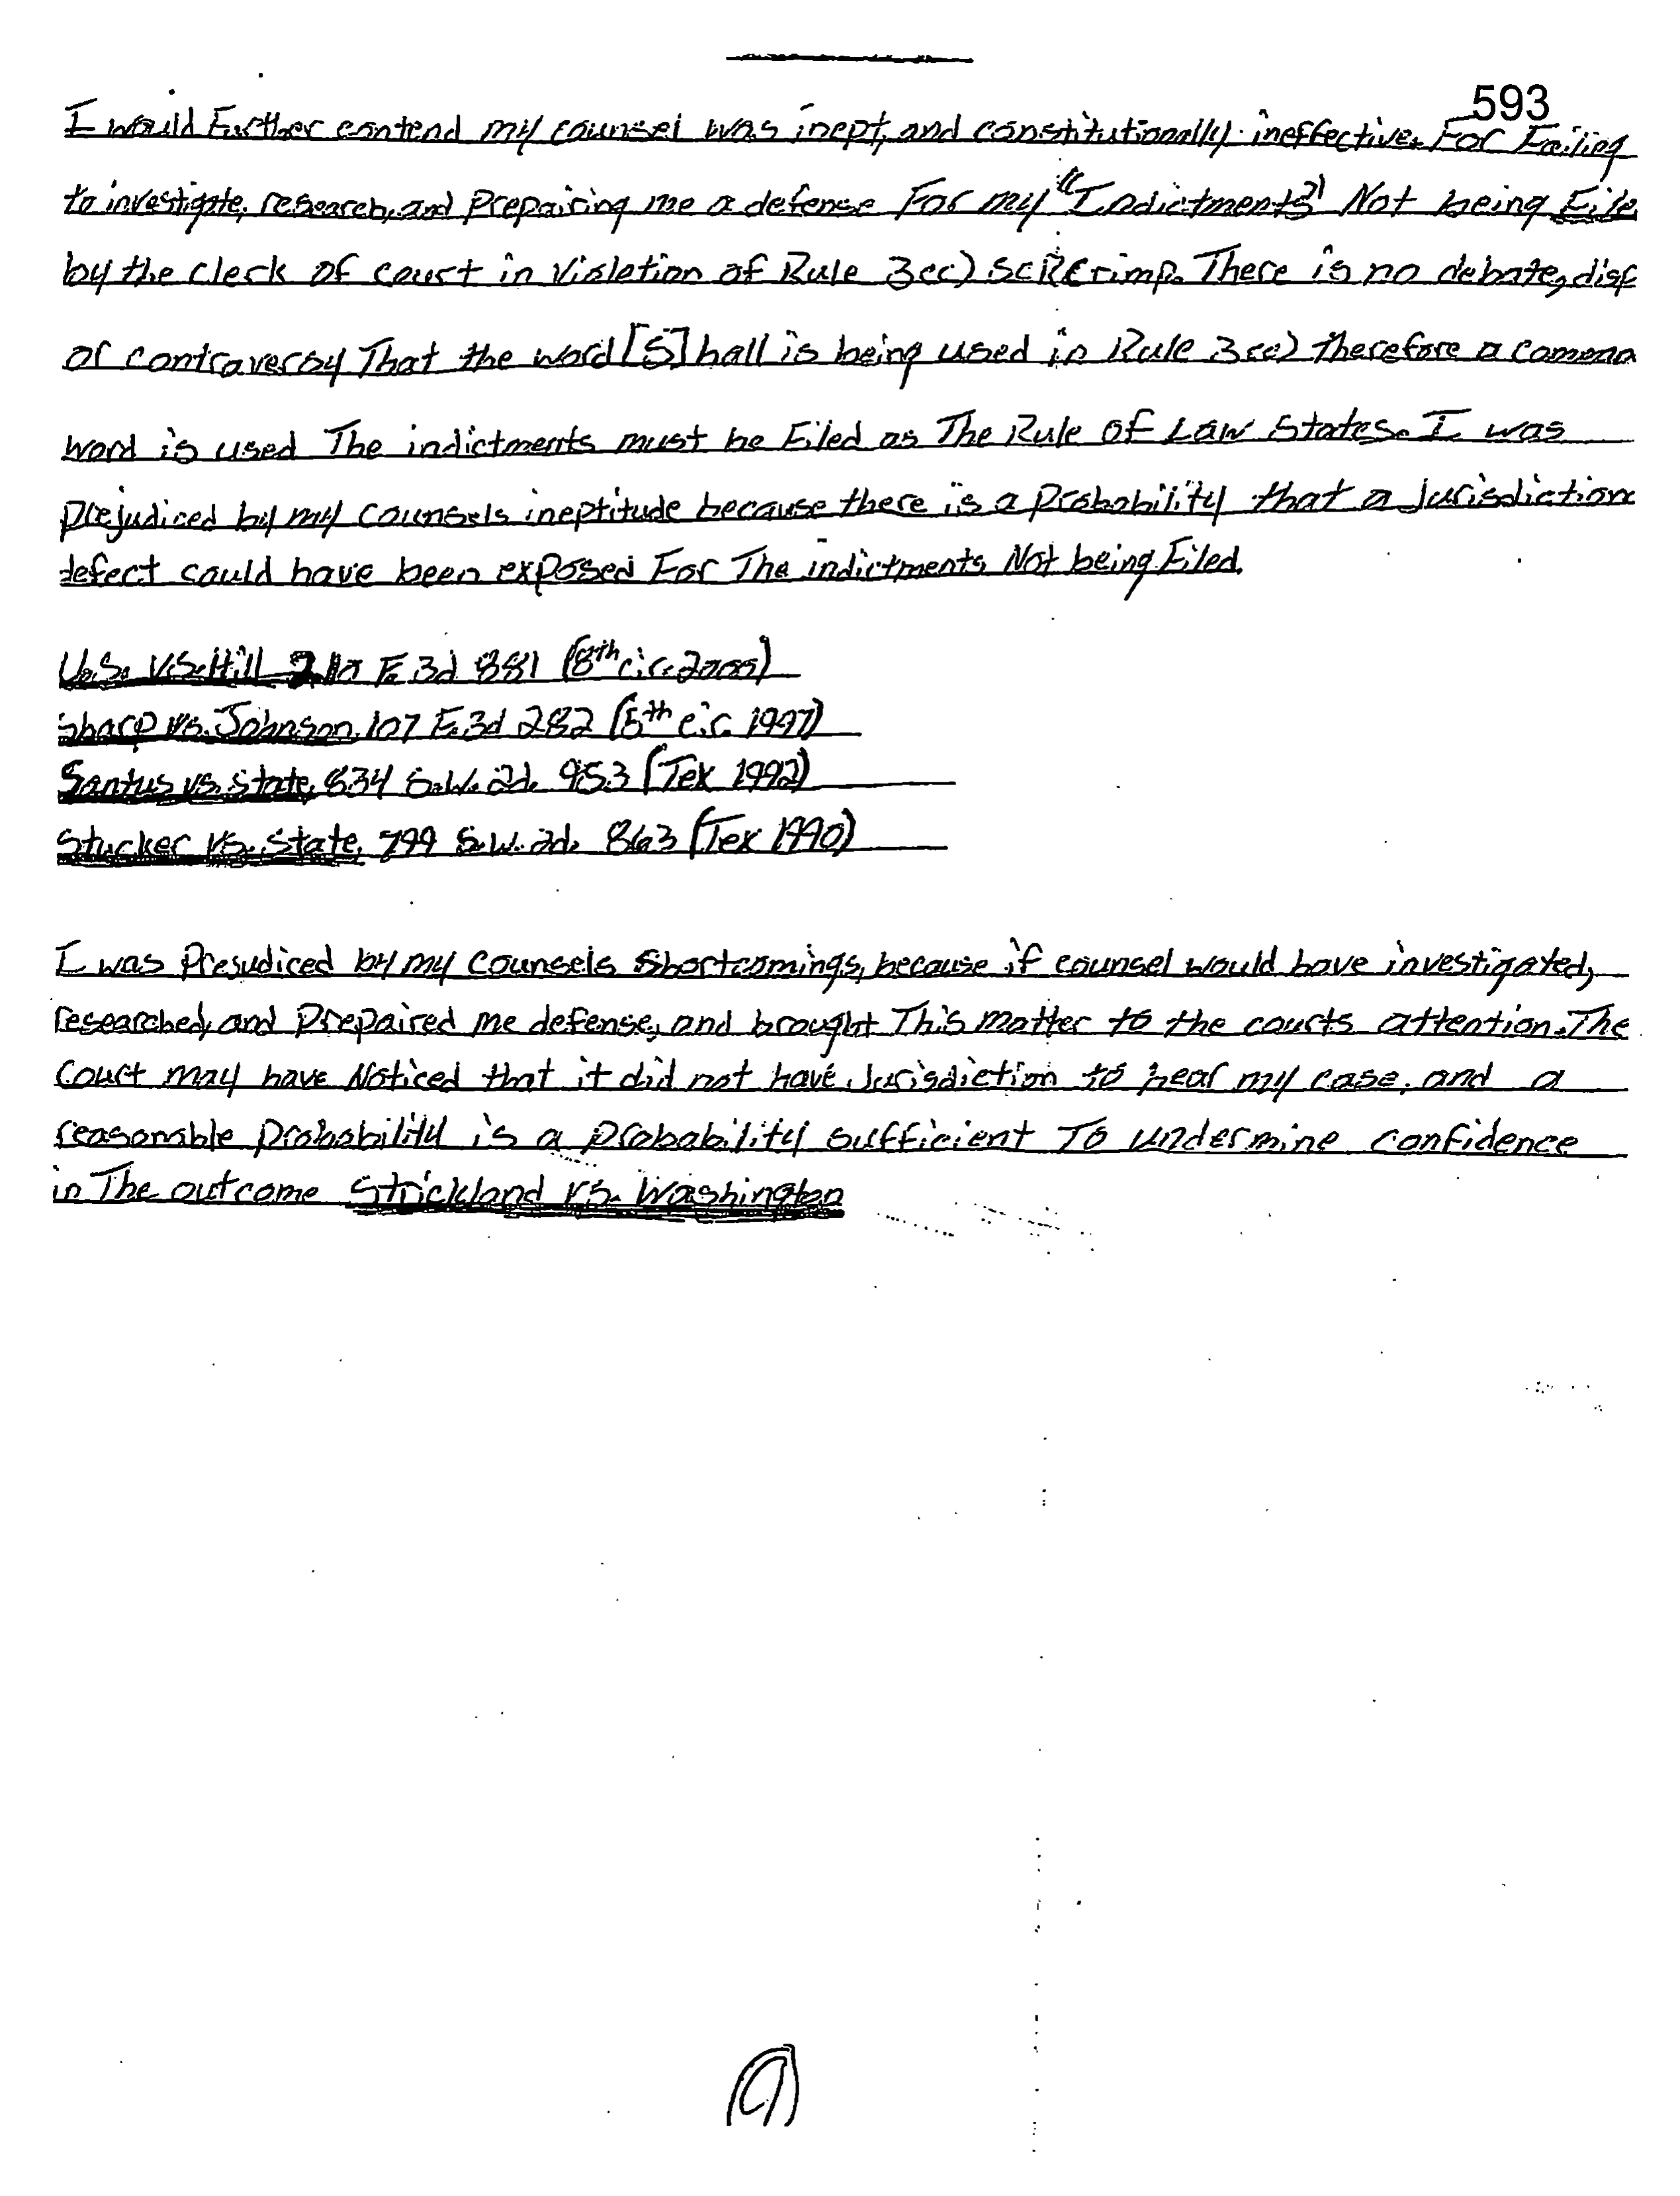 593
I would Further contend my counsel was inept, and constitutionally ineffective. For Failing
to investigate, research, and prepairing me a defense For my "Indictments" Not being File
by the clerk of court in violation of Rule 3(c) SCRCrimp. There is no debate, disp
or contraversy That the word [S]hall is being used in Rule 3(c) therefore a comman
word is used The indictments must be Filed as The Rule of Law States. I was
prejudiced by my counsels ineptitude because there is a probability that a jurisdiction
defect could have been exposed For The indictments Not being Filed.
U.S. vs. Hill 210 F. 3d 881 (8th cir. 2000)
Sharp vs. Johnson, 107 F. 3d 282 (5th cir. 1997)
vs. State, 834 S.W. 2d. 953 (Tex 1992)
Stucker vs. State, 799 S.W. 2d. 863 (Tex 1990)
I was Prejudiced by my counsels shortcomings, because if counsel would have investigated,
researched, and prepaired me defense, and brought This matter to the courts attention. The
Court may have Noticed that it did not have jurisdiction to hear my case. and a
reasonable probability is a probability sufficient To undermine confidence
in The outcome Strickland vs. Washington